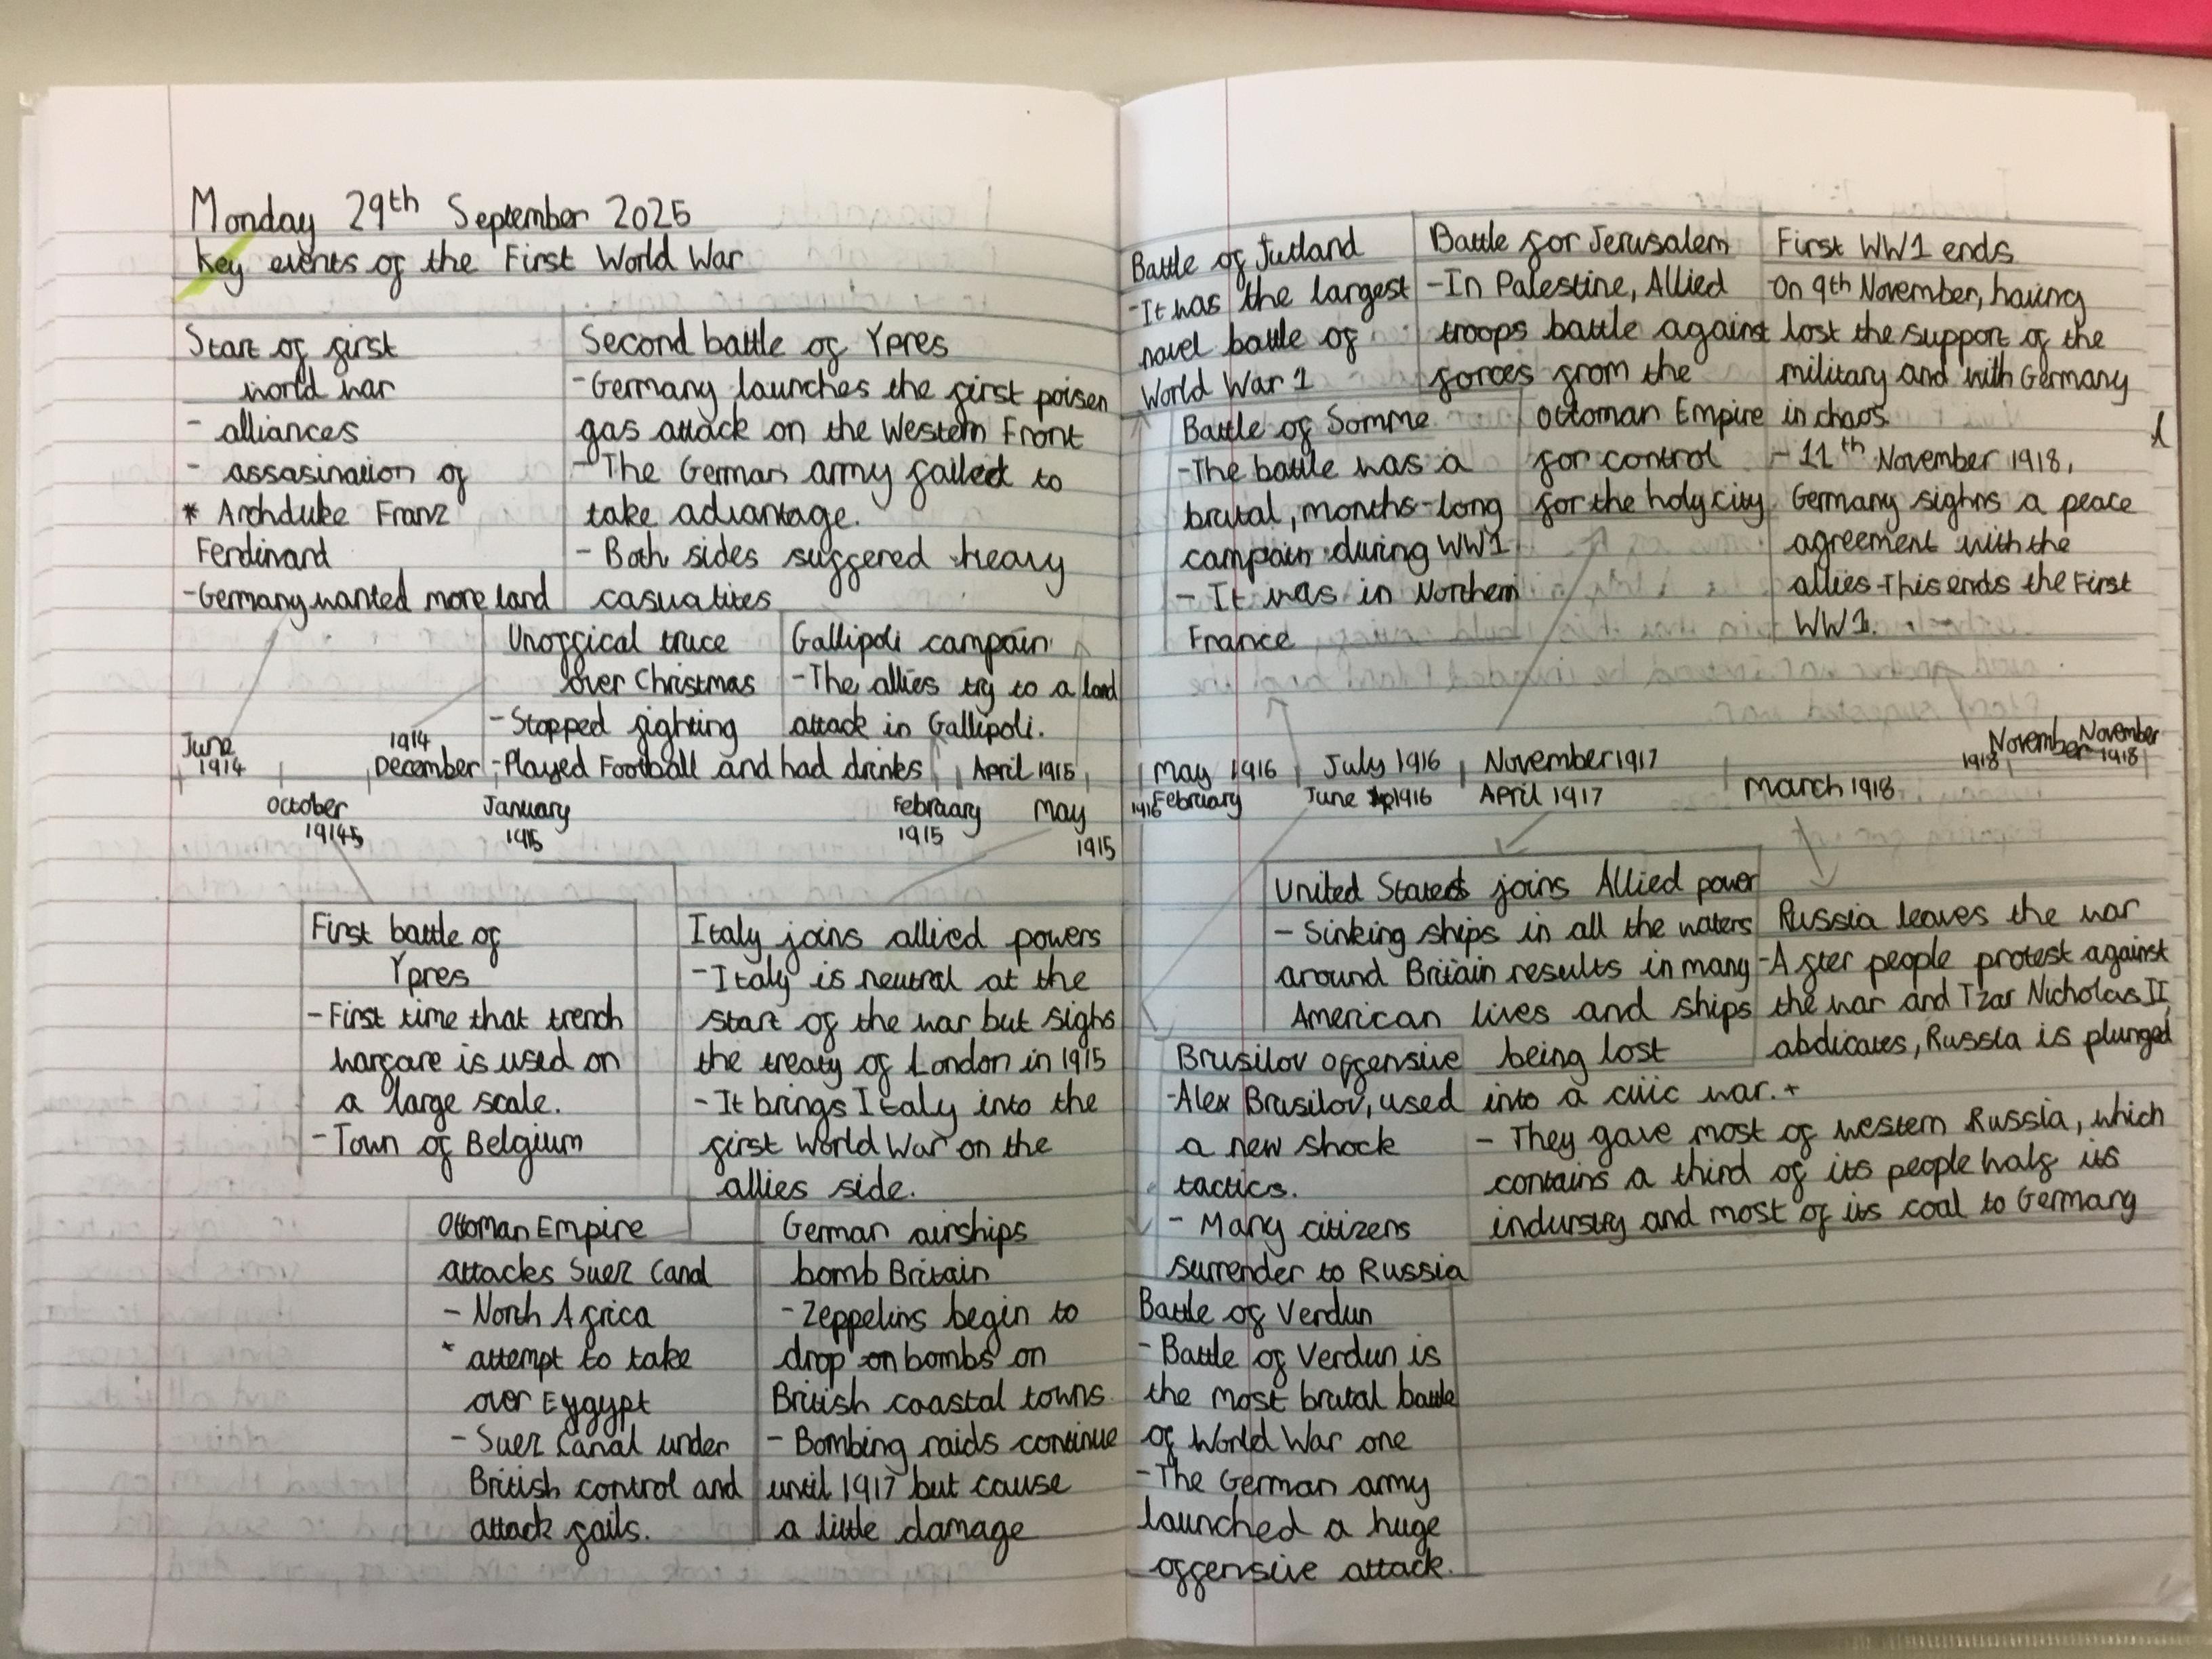 Monday 29th September 2025
Key events of the First World War
Start of first
world war
- alliances
- assasination of
* Archduke Franz
Ferdinard
- Germany wanted more land
Second battle of Ypres
- Germany launches the first poisen
gas attack on the Western Front
- The German army failed to
take advantage.
- Both sides suffered heavy
casualites
Unoffical truce
over Christmas
- Stopped fighting
- Played Football and had drinks
Gallipoli campain
- The allies try to a land
attack in Gallipoli.
June
1914
October
1914
1914
December
January
1915
February
1915
April 1915
May
1915
First battle of
Ypres
- First time that trench
warfare is used on
a large scale.
- Town of Belgium
Italy joins allied powers
- Italy is neutral at the
start of the war but sighs
the treaty of London in 1915
- It brings Italy into the
first World War on the
allies side.
Ottoman Empire
attacks Suez Canal
- North Africa
* attempt to take
over Eygypt
- Suez Canal under
British control and
attack fails.
German airships
bomb Britain
- Zeppelins begin to
drop on bombs on
British coastal towns
- Bombing raids continue
until 1917 but cause
a little damage
Battle of Jutland
- It was the largest
navel battle of
World War 1
Battle of Somme
- The battle was a
brutal, months-long
campain during WW1
- It was in Northern
France
Battle for Jerusalem
- In Palestine, Allied
troops battle against
forces from the
Ottoman Empire
for control
for the holy city
First WW1 ends
On 9th November, having
lost the support of the
military and with Germany
in chaos.
- 11th November 1918,
Germany sighns a peace
agreement with the
allies - This ends the First
WW1.
May 1916
1916 February
July 1916
June 1916
November 1917
April 1917
March 1918
November
1918
November
1918
United States joins Allied power
- Sinking ships in all the waters
around Britain results in many
American lives and ships
being lost
Russia leaves the war
- After people protest against
the war and Tzar Nicholas II
abdicates, Russia is plunged
into a civic war. +
- They gave most of western Russia, which
contains a third of its people half its
indurstry and most of its coal to Germany
Brusilov offensive
- Alex Brusilov, used
a new shock
tactics.
- Many citizens
surrender to Russia
Battle of Verdun
- Battle of Verdun is
the most brutal battle
of World War one
- The German army
launched a huge
offensive attack.